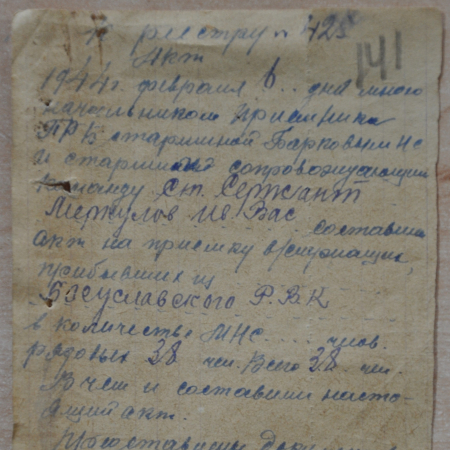 К реестру № 425
141
Акт
1944 г. февраля 6.. дня мною
начальником приемника
ПРБ старшиной Барковым ИС
и старший сопровождающий
команду Ст. Сержант
Меркулов Ив Вас
составили
акт на приемку в/служащих,
прибывших из
Богуславского Р.В.К
в количестве МНС .... чнов.
рядовых 38 чел. Всего 38 чел.
В чем и составили насто-
ящий акт.